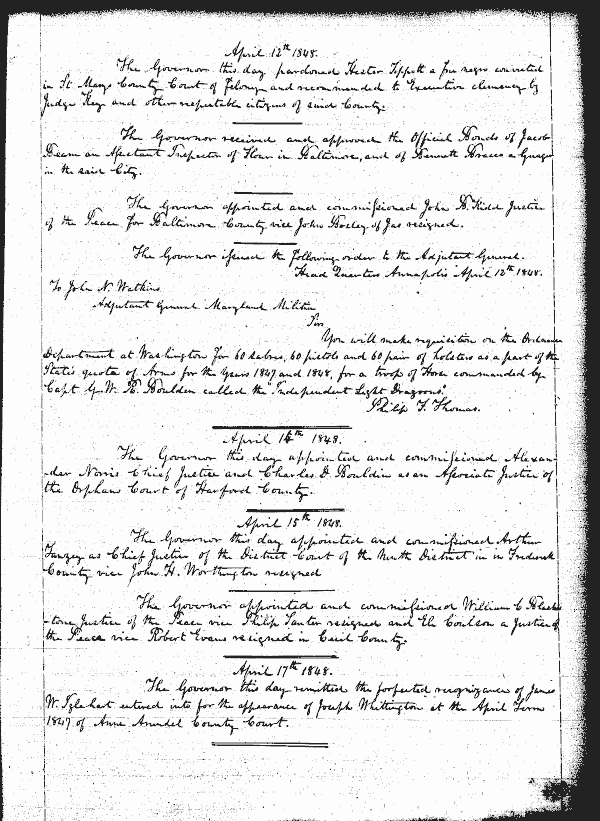 April 12th 1848.
The Governor this day pardoned Hester Tippett a free negro convicted
in St Marys County Court of Felony and recommended to Executive clemency by
Judge Key and other respectable citizens of said County.
The Governor received and approved the Official Bonds of Jacob
Beam an Assistant Inspector of Flour in Baltimore, and of Bennett a Gauger
in the said City.
The Governor appointed and commissioned John B. Kidd Justice
of the Peace for Baltimore County vice John Bosley of Jas resigned.
The Governor issued the following order to the Adjutant General.
Head Quarters Annapolis April 12th 1848.
To John N. Watkins
Adjutant General Maryland Militia
Sir
You will make requisition on the Ordnance
Department at Washington for 60 sabres, 60 pistols and 60 pair of holsters as a part of the
State's quota of Arms for the Years 1847 and 1848, for a troop of Horse commanded by
Capt G. W. H. Boulden called the "Independent Light Dragoons".
Philip F. Thomas.
April 14th 1848.
The Governor this day appointed and commissioned Alexan-
der Norris Chief Justice and Charles D. Bouldin as an Associate Justice of
the Orphans Court of Harford County.
April 15th 1848.
The Governor this day appointed and commissioned Arthur
as Chief Justice of the District Court of the Ninth District in in Frederick
County vice John H. Worthington resigned
The Governor appointed and commissioned William C. Blacks
-tone Justice of the Peace vice Philip resigned and Eli Coulson a Justice of
the Peace vice Robert Evans resigned in Cecil County.
April 17th 1848.
The Governor this day remitted the forfeited recognizance of James
W. Iglehart entered into for the appearance of Joseph Whittington at the April Term
1847 of Anne Arundel County Court.